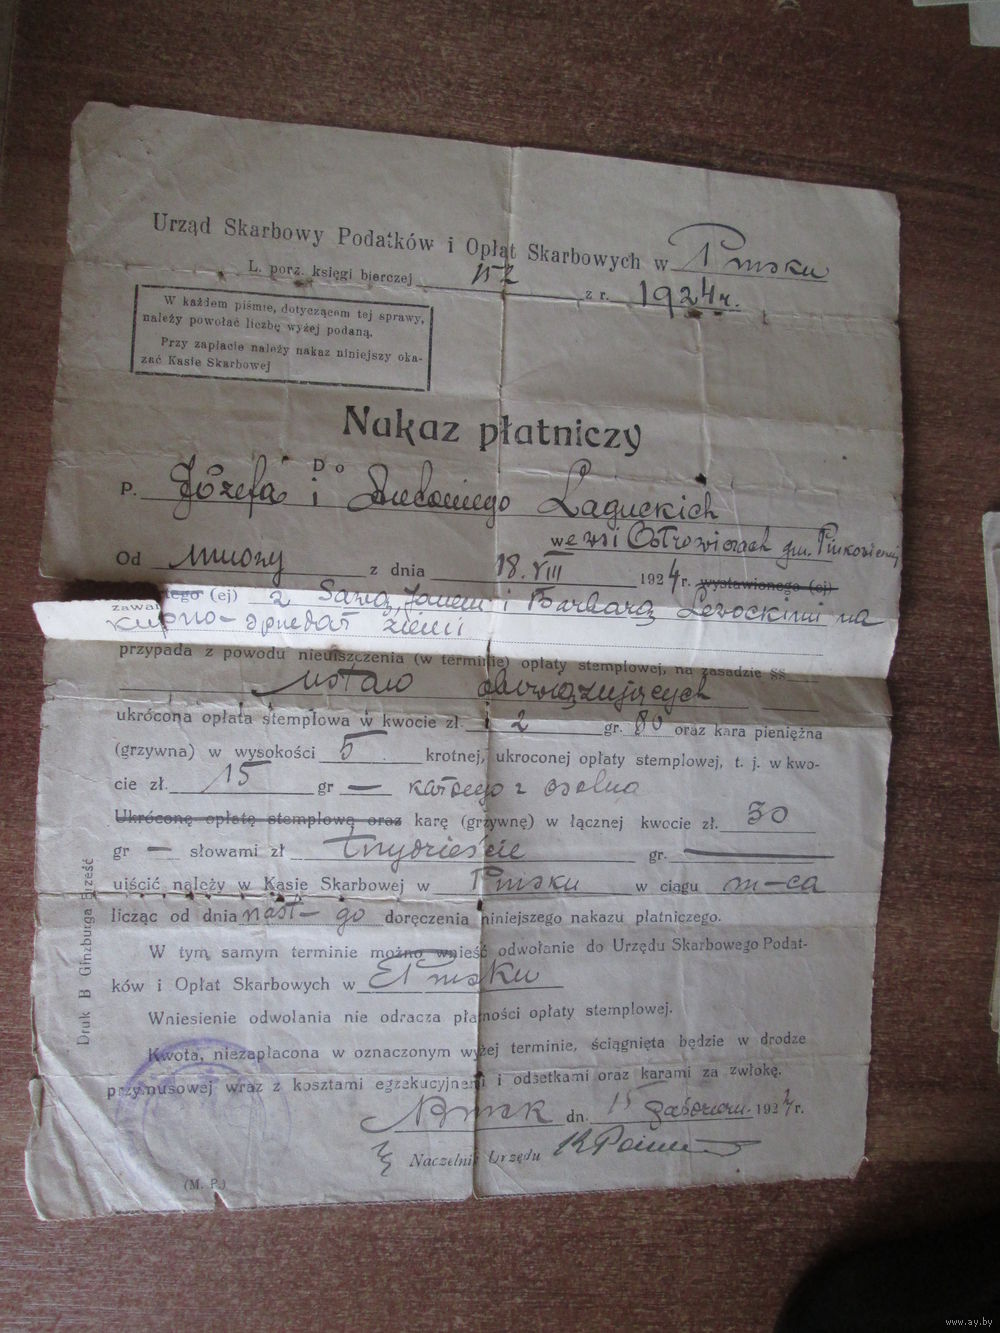 Urząd Skarbowy Podatków i Opłat Skarbowych w Pińsku
L. porz. księgi bierczej 152 z r. 1924 r.
W każdem piśmie, dotyczącem tej sprawy,
należy powołać liczbę wyżej podaną.
Przy zapłacie należy nakaz niniejszy oka-
zać Kasie Skarbowej
Nakaz płatniczy
Do
P. Józefa i Łaguckich
we wsi gm. Pinkowicze
Od umowy z dnia 18. VIII 1924 r. wystawionego (ej)
zawartego (ej) z Sawą, Janem i Barbarą Lewockimi na
kupno-sprzedaż ziemi
przypada z powodu nieuiszczenia (w terminie) opłaty stemplowej, na zasadzie §§
ustaw obowiązujących
ukrócona opłata stemplowa w kwocie zł. 2 gr. 80 oraz kara pieniężna
(grzywna) w wysokości 5 krotnej, ukroconej opłaty stemplowej, t. j. w kwo-
cie zł. 15 gr — każdego z osobna
Ukróconę opłatę stemplową oraz karę (grzywnę) w łącznej kwocie zł. 30
gr — słowami zł trzydzieście gr.
uiścić należy w Kasie Skarbowej w Pińsku w ciągu m-ca
licząc od dnia nast-go doręczenia niniejszego nakazu płatniczego.
W tym samym terminie można wnieść odwołanie do Urzędu Skarbowego Podat-
ków i Opłat Skarbowych w Pińsku
Wniesienie odwołania nie odracza płatności opłaty stemplowej.
Kwota, niezapłacona w oznaczonym wyżej terminie, ściągnięta będzie w drodze
przymusowej wraz z kosztami egzekucyjnemi i odsetkami oraz karami za zwłokę.
Pińsk dn. 15 192 r.
Naczelnik Urzędu
(M. P.)
Druk B Ginzburga Brześć
www.ay.by